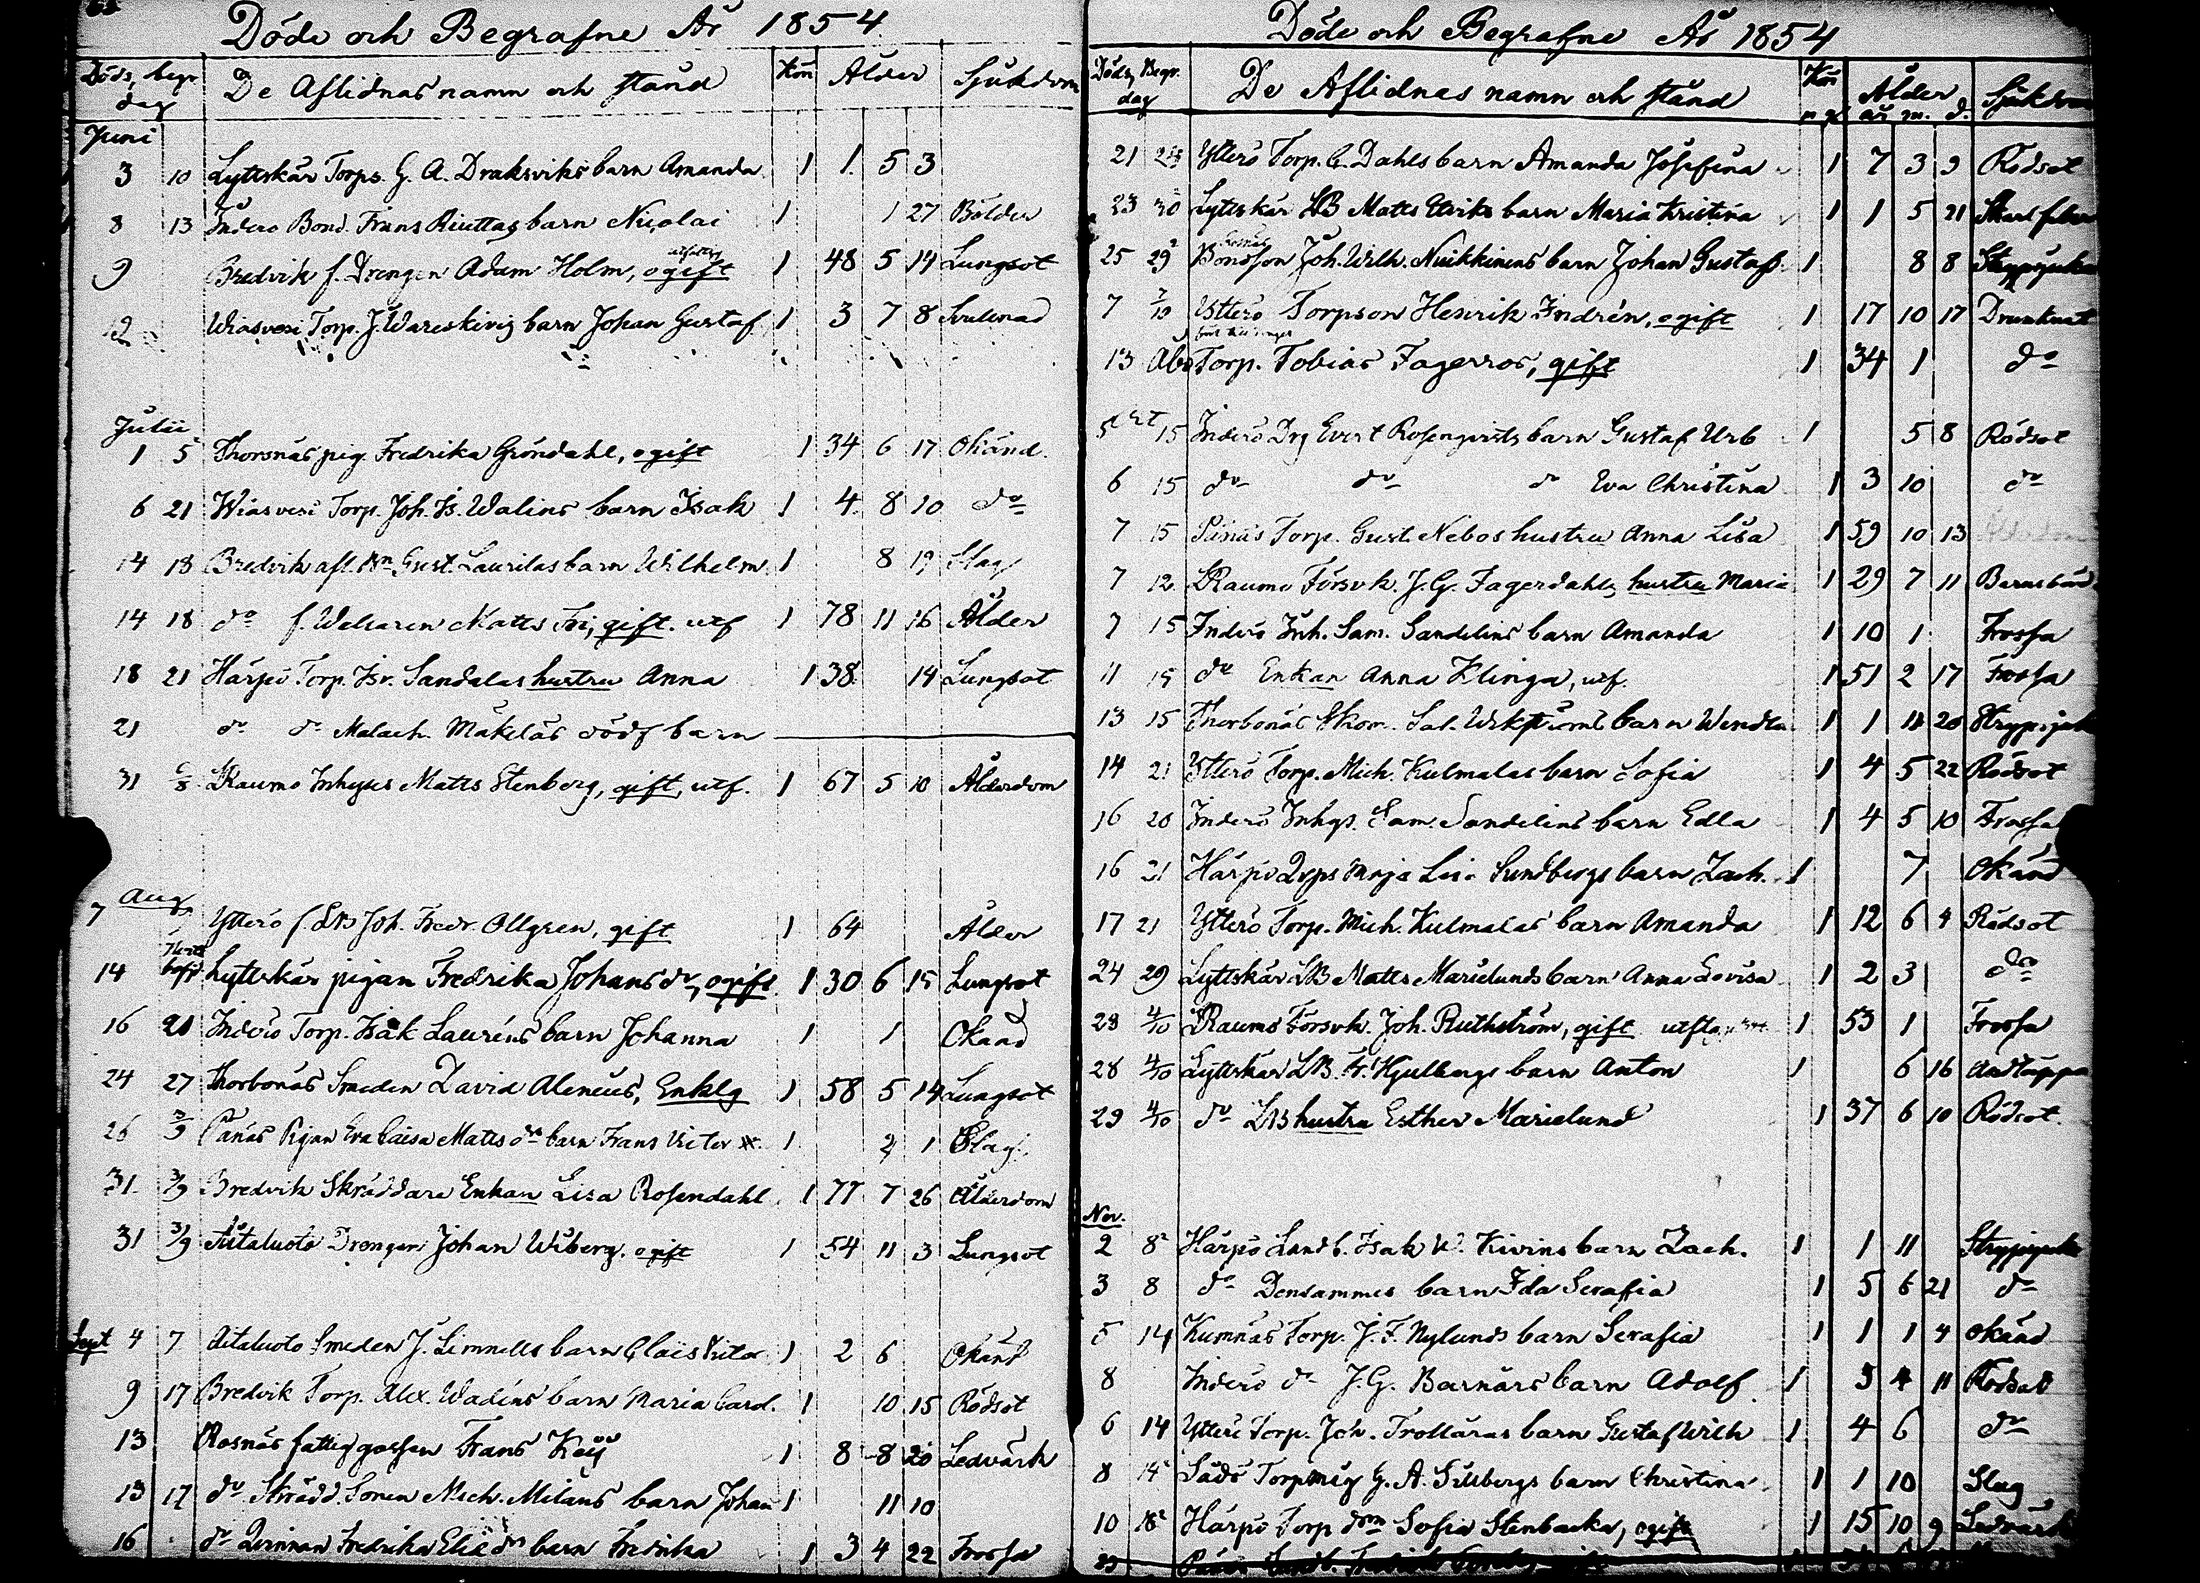 Döde och Begrafne År 1854
Döds, begr. dag De Aflidnas namn och stånd Kön Ålder Sjukdom
Juni
3 10 Lyttskär Torps. G. A. Draksviks barn Amanda 1 1 5 3
8 13 Inderö Bond. Frans Riuttas barn Nicolai 1 1 27 Bölder
9 Bredvik f. Drengen Adam Holm, ogift 1 48 5 14 Lungsot
Wiasvesi Torp. J. Wareskivis barn Johan Gustaf 1 3 7 8 Svullnad
Julii
1 5 Thorsnäs pig. Fredrika Gröndahl, ogift 1 34 6 17 Okänd.
6 21 Wiasvesi Torp. Joh. Is. Walins barn Isak 1 4 8 10 do
14 18 Bredvik afl. Gust. Laurilas barn Wilhelm 1 8 19 Slag
14 18 do f. Matts gift. utf 1 78 11 16 Ålder
18 21 Härpö Torp. Isr. Sandalas hustru Anna 1 38 14 Lungsot
21 do do Malach. Mäkeläs dödf barn
31 LRaumo Inhyses Matts Stenberg, gift, utf. 1 67 5 10 Ålderdom
Aug
7 Ytterö f. LB Joh. Fredr. Ollgren, gift 1 64 Ålder
14 Lyttskär pigan Fredrika Johansdr, ogift 1 30 6 15 Lungsot
16 21 Inderö Torp. Isak Lauréns barn Johanna 1 1 Okänd
24 27 Thorbonäs Smeden David Alenius, Enklg 1 58 5 14 Lungsot
26 3/9 Pänäs Pigan Eva Caisa Mattsdr barn Frans Victor 1 2 1 Slag
31 3/9 Bredvik Skräddare Enkan Lisa Rosendahl 1 77 7 26 Ålderdom
31 3/9 Aitaluoto Drengen Johan Wiberg, ogift 1 54 11 3 Lungsot
Sept 4 7 Aitaluoto Smeden J. Limnells barn Victor 1 2 6 Okänd
9 17 Bredvik Torp. Alex. Wadéns barn Maria Carol. 1 10 15 Rödsot
13 Rosnäs fattiggossen Frans 1 8 8 20 Ledvärk
13 17 do Skrädd. Sonen Mich. Miläns barn Johan 1 11 10
16 do Qvinnan Fredrika Eliedr barn Fredrika 1 3 4 22 Frossa
Döde och Begrafne År 1854
Döds, Begr. dag De Aflidnas namn och stånd Kön m. q. Ålder år m. d. Sjukdom
21 24 Ytterö Torp. C. Dahls barn Amanda Josefina 1 7 3 9 Rödsot
23 30 Lyttskär LB Matts barn Maria Kristina 1 1 5 21
25 29 Rosnäs Bondson Joh. Wilh. Nuikkinens barn Johan Gustaf 1 8 8 Strypsjuka
7 Ytterö Torpson Henrik Indrén, ogift 1 17 10 17 Drunknat
13 Torp. Tobias Fagerros, gift 1 34 1 do
5 15 Inderö Drg Evert Rosenqvists barn Gustaf Urb 1 5 8 Rödsot
6 15 do do do Eva Christina 1 3 10 do
7 15 Pänäs Torp. Gust. Nebos hustru Anna Lisa 1 59 10 13
7 12 LRaumo Försvk. J. G. Fagerdahls hustru Maria 1 29 7 11 Barnsbörd
7 15 Inderö Inh. Sam. Sandelins barn Amanda 1 10 1 Frossa
11 15 do Enkan Anna Klinga, utf. 1 51 2 17 Frossa
13 15 Thorbonäs Skom. Sal. barn Wendla 1 1 11 20 Strypsjuk
14 21 Ytterö Torp. Mich. Kulmalas barn Sofia 1 4 5 22 Rödsot
16 20 Inderö Inhys. Sam. Sandelins barn Edla 1 4 5 10 Frossa
16 21 Härpö Maja Lisa Sundbergs barn Zach. 1 7 Okänd
17 21 Ytterö Torp. Mich. Kulmalas barn Amanda 1 12 6 4 Rödsot
24 29 Lyttskär LB Matts Marielunds barn Anna Lovisa 1 2 3 do
28 4/10 LRaumo Försvk. Joh. Ruthström, gift 1 53 1 Frossa
28 4/10 Lyttskär LB. Fr. Hjulbergs barn Anton 1 6 16 Andtäppa
29 4/10 do LB hustru Esther Marielund 1 37 6 10 Rödsot
Nov.
2 8 Härpö Landb. Isak W. Kivins barn Zach. 1 1 11 Strypsjuka
3 8 do Densammes barn Ida Serafia 1 5 6 21 do
5 14 Kumnäs Torp. J. F. Nylunds barn Serafia 1 1 1 4 okänd
8 Inderö do J. G. Barnärs barn Adolf 1 3 4 11 Rödsot
6 14 Ytterö Torp. Joh. Trollaras barn Gustaf Wilh 1 4 6 do
8 14 Sådö Torpmåg G. A. Sillbergs barn Christina 1 1 10 Slag
10 18 Härpö Torp dom Sofia Stenbacka, ogift 1 15 10 9 Ledvärk